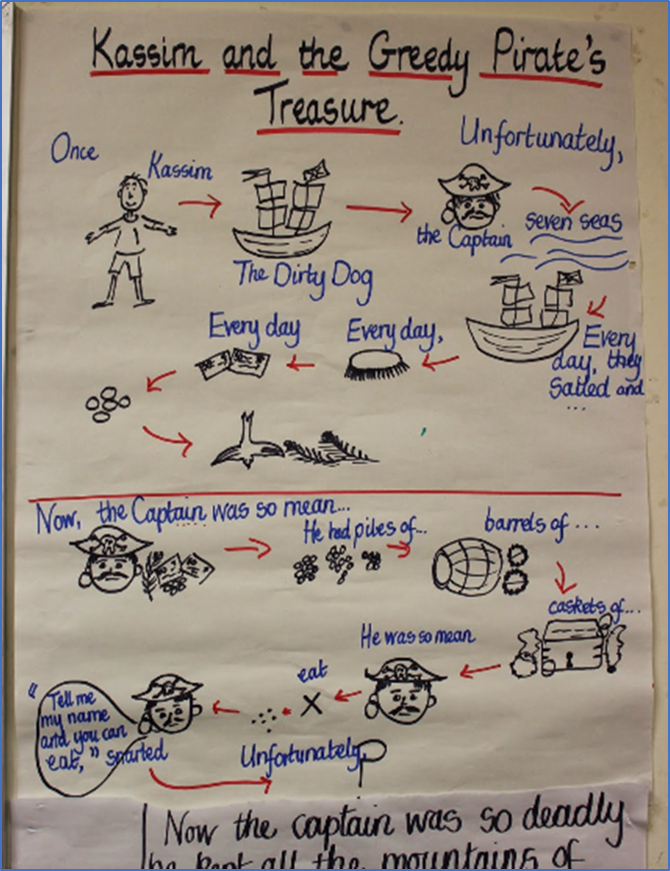 Kassim and the Greedy Pirate's
Treasure.
Once
Kassim
The Dirty Dog
Unfortunately,
the Captain
seven seas
Every
day, they
sailed and
...
Every day,
Every day
Now, the Captain was so mean...
He had piles of...
barrels of ...
caskets of...
He was so mean
eat
"Tell me
my name
and you can
eat," snarled
Unfortunately,
Now the captain was so deadly
he kept all the mountains of